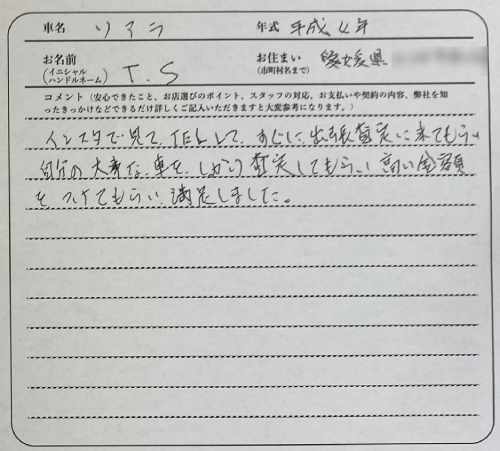 車名 ソアラ 年式 平成4年
お名前 お住まい 愛媛県
(イニシャル ハンドルネーム) T.S (市町村名まで)
コメント（安心できたこと、お店選びのポイント、スタッフの対応、お支払いや契約の内容、弊社を知
ったきっかけなどできるだけ詳しくご記入いただきますと大変参考になります。）
インスタで見て、TELして、すぐに出張査定に来てもらい
自分の大事な車を、しっかり査定してもらい、高い金額
をつけてもらい、満足しました。